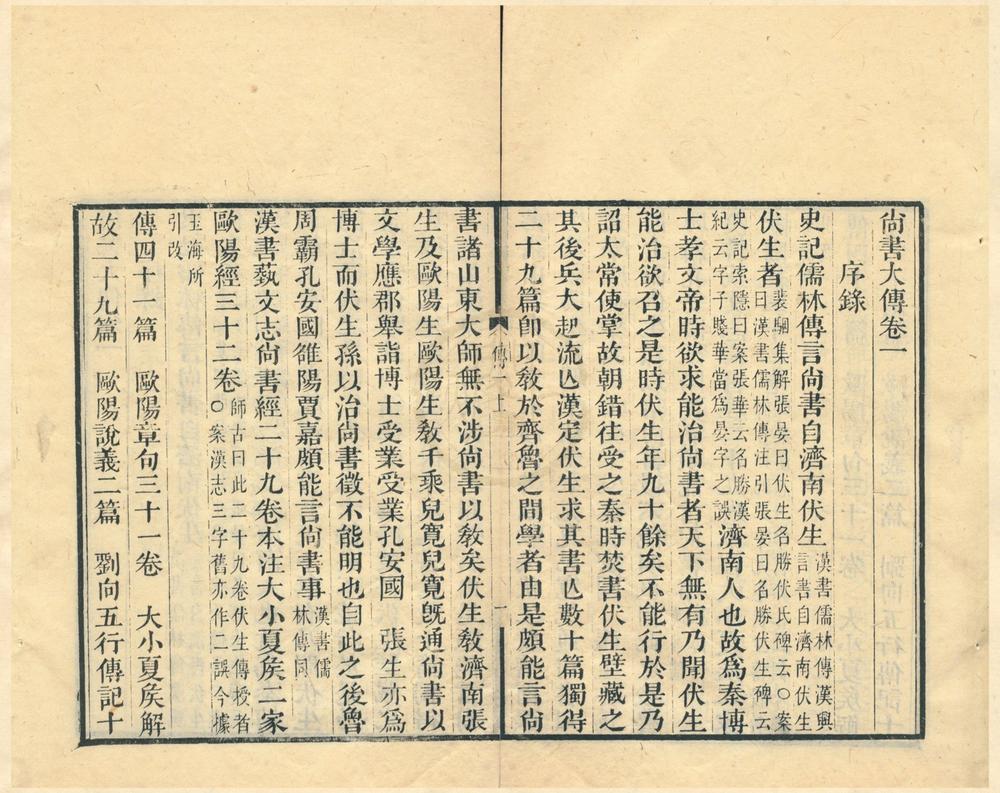 尙書大傳卷一
序錄
史記儒林傳言尙書自濟南伏生漢書儒林傳漢興言書自濟南伏生
伏生者裴駰集解張晏曰伏生名勝伏氏碑云○案曰漢書儒林傳注引張晏曰名勝伏生碑云
史記索隱曰案張華云名勝漢紀云字子賤華當爲晏字之誤濟南人也故爲秦博
士孝文帝時欲求能治尙書者天下無有乃聞伏生
能治欲召之是時伏生年九十餘矣不能行於是乃
詔太常使掌故朝錯往受之秦時焚書伏生壁藏之
其後兵大起流亾漢定伏生求其書亾數十篇獨得
二十九篇卽以敎於齊魯之閒學者由是頗能言尙
傳一上
一
書諸山東大師無不涉尙書以敎矣伏生敎濟南張
生及歐陽生歐陽生敎千乘兒寬兒寬旣通尙書以
文學應郡舉詣博士受業受業孔安國 張生亦爲
博士而伏生孫以治尙書徵不能明也自此之後魯
周霸孔安國雒陽賈嘉頗能言尙書事漢書儒林傳同
漢書藝文志尙書經二十九卷本注大小夏矦二家
歐陽經三十二卷師古曰此二十九卷伏生傳授者○案漢志三字舊亦作二誤今據
玉海所引改
傳四十一篇 歐陽章句三十一卷 大小夏矦解
故二十九篇 歐陽說義二篇 劉向五行傳記十